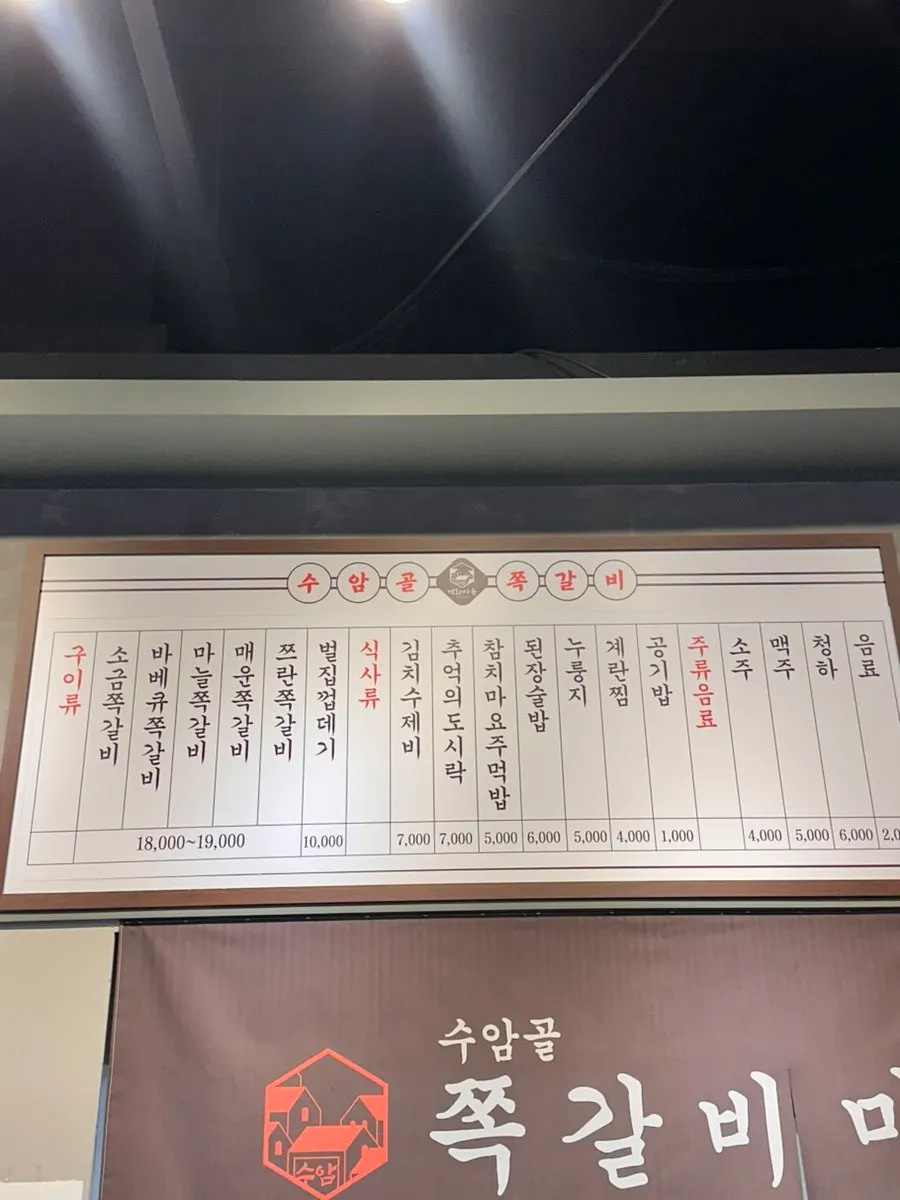 수암골 쪽갈비
구이류
소금쪽갈비
바베큐쪽갈비
마늘쪽갈비
매운쪽갈비
쯔란쪽갈비
18,000~19,000
벌집껍데기
10,000
식사류
김치수제비
7,000
추억의도시락
7,000
참치마요주먹밥
5,000
된장술밥
6,000
누룽지
5,000
계란찜
4,000
공기밥
1,000
주류음료
소주
4,000
맥주
5,000
청하
6,000
음료
2,0
수암골
쪽갈비
수암